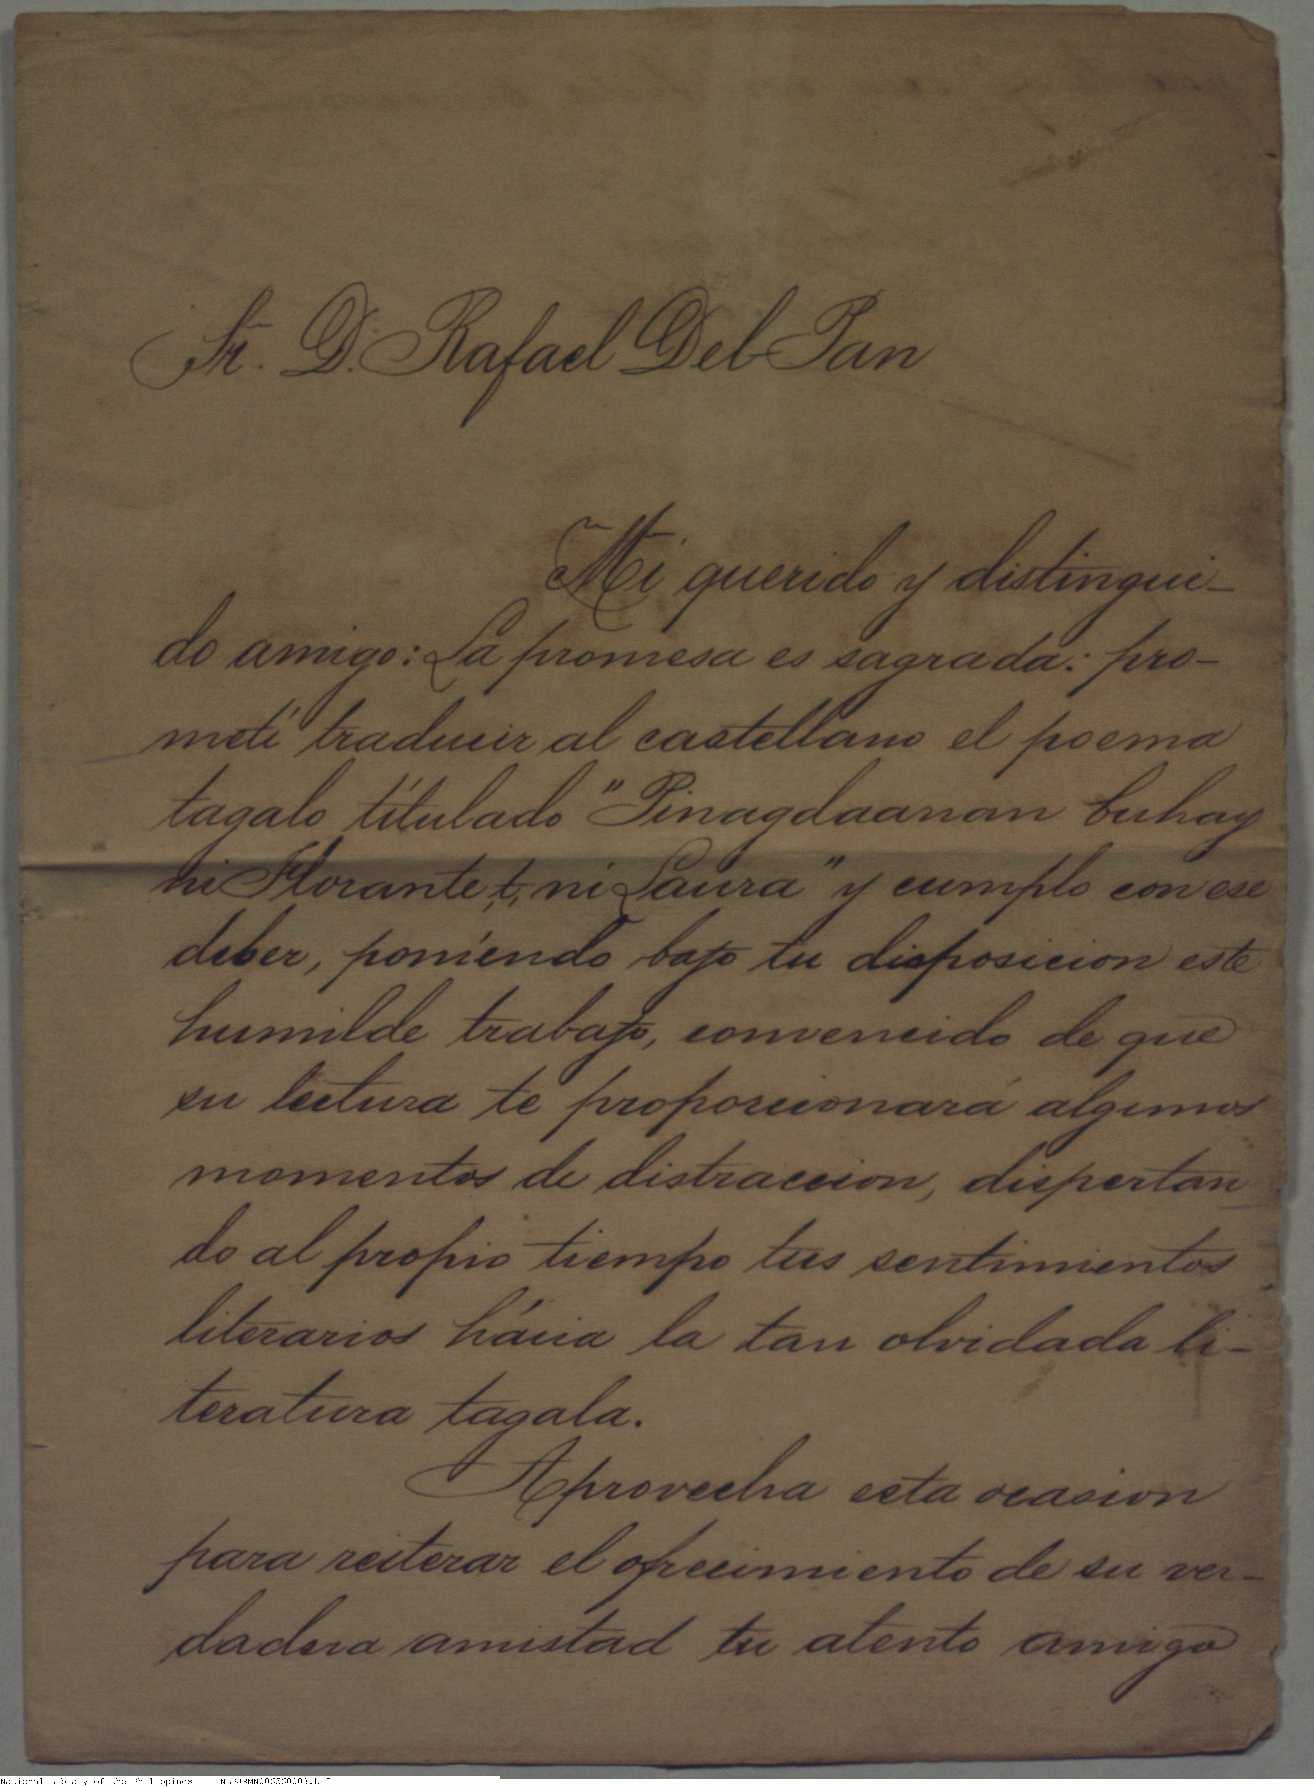 Sr. D. Rafael Del Pan
Mi querido y distingui-
do amigo: La promesa es sagrada: pro-
metí traducir al castellano el poema
tagalo titulado "Pinagdaanan buhay
ni Florante t, ni Laura" y cumplo con ese
deber, poniendo bajo tu disposicion este
humilde trabajo, convencido de que
su lectura te proporcionará algunos
momentos de distraccion, dispertan
do al propio tiempo tus sentimientos
literarios hácia la tan olvidada li-
teratura tagala.
Aprovecha esta ocasion
para reiterar el ofrecimiento de su ver-
dadera amistad tu atento amigo
National Library of the Philippines